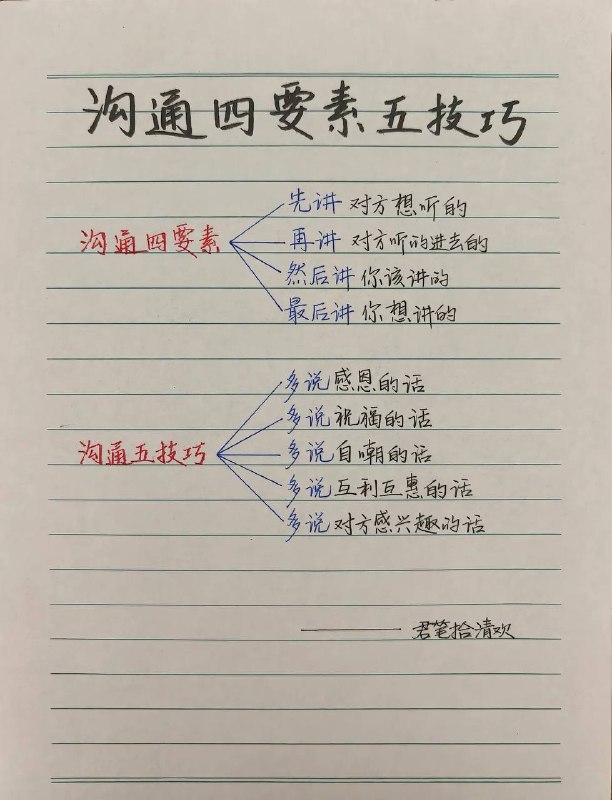 沟通四要素五技巧
先讲 对方想听的
再讲 对方听的进去的
沟通四要素
然后讲 你该讲的
最后讲 你想讲的
多说感恩的话
多说祝福的话
沟通五技巧
多说自嘲的话
多说互利互惠的话
多说对方感兴趣的话
——君笔拾清欢